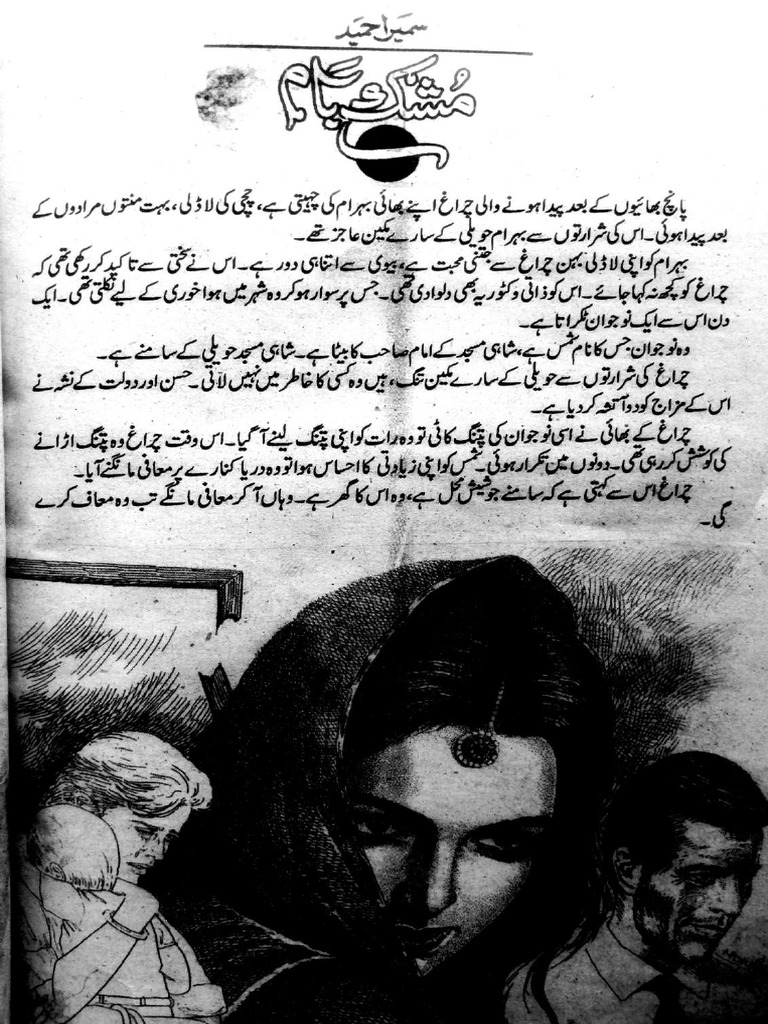 سمیرا حمید
مُشکِ بام
پانچ بھائیوں کے بعد پیدا ہونے والی چراغ اپنے بھائی بہرام کی چہیتی ہے، چچی کی لاڈلی، بہت منتوں مرادوں کے
بعد پیدا ہوئی۔ اس کی شرارتوں سے بہرام حویلی کے سارے مکین عاجز تھے۔
بہرام کو اپنی لاڈلی بہن چراغ سے جتنی محبت ہے، بیوی سے اتنا ہی دور ہے۔ اس نے سختی سے تاکید کر رکھی تھی کہ
چراغ کو کچھ نہ کہا جائے۔ اس کو ذاتی وکٹوریہ بھی دلوا دی تھی۔ جس پر سوار ہو کر وہ شہر میں ہوا خوری کے لیے نکلتی تھی۔ ایک
دن اس سے ایک نوجوان ٹکراتا ہے۔
وہ نوجوان جس کا نام شمس ہے، شاہی مسجد کے امام صاحب کا بیٹا ہے۔ شاہی مسجد حویلی کے سامنے ہے۔
چراغ کی شرارتوں سے حویلی کے سارے مکین تنگ، ہیں وہ کسی کا خاطر میں نہیں لاتی۔ حسن اور دولت کے نشہ نے
اس کے مزاج کو دو آتشہ کر دیا ہے۔
چراغ کے بھائی نے اسی نوجوان کی پتنگ کاٹی تو وہ رات کو اپنی پتنگ لینے آ گیا۔ اس وقت چراغ وہ پتنگ اڑانے
کی کوشش کر رہی تھی۔ دونوں میں تکرار ہوئی۔ شمس کو اپنی زیادتی کا احساس ہوا تو وہ دریا کنارے پر معافی مانگنے آیا۔
چراغ اس سے کہتی ہے کہ سامنے جو شیش محل ہے، وہ اس کا گھر ہے۔ وہاں آ کر معافی مانگے تب وہ معاف کرے
گی۔